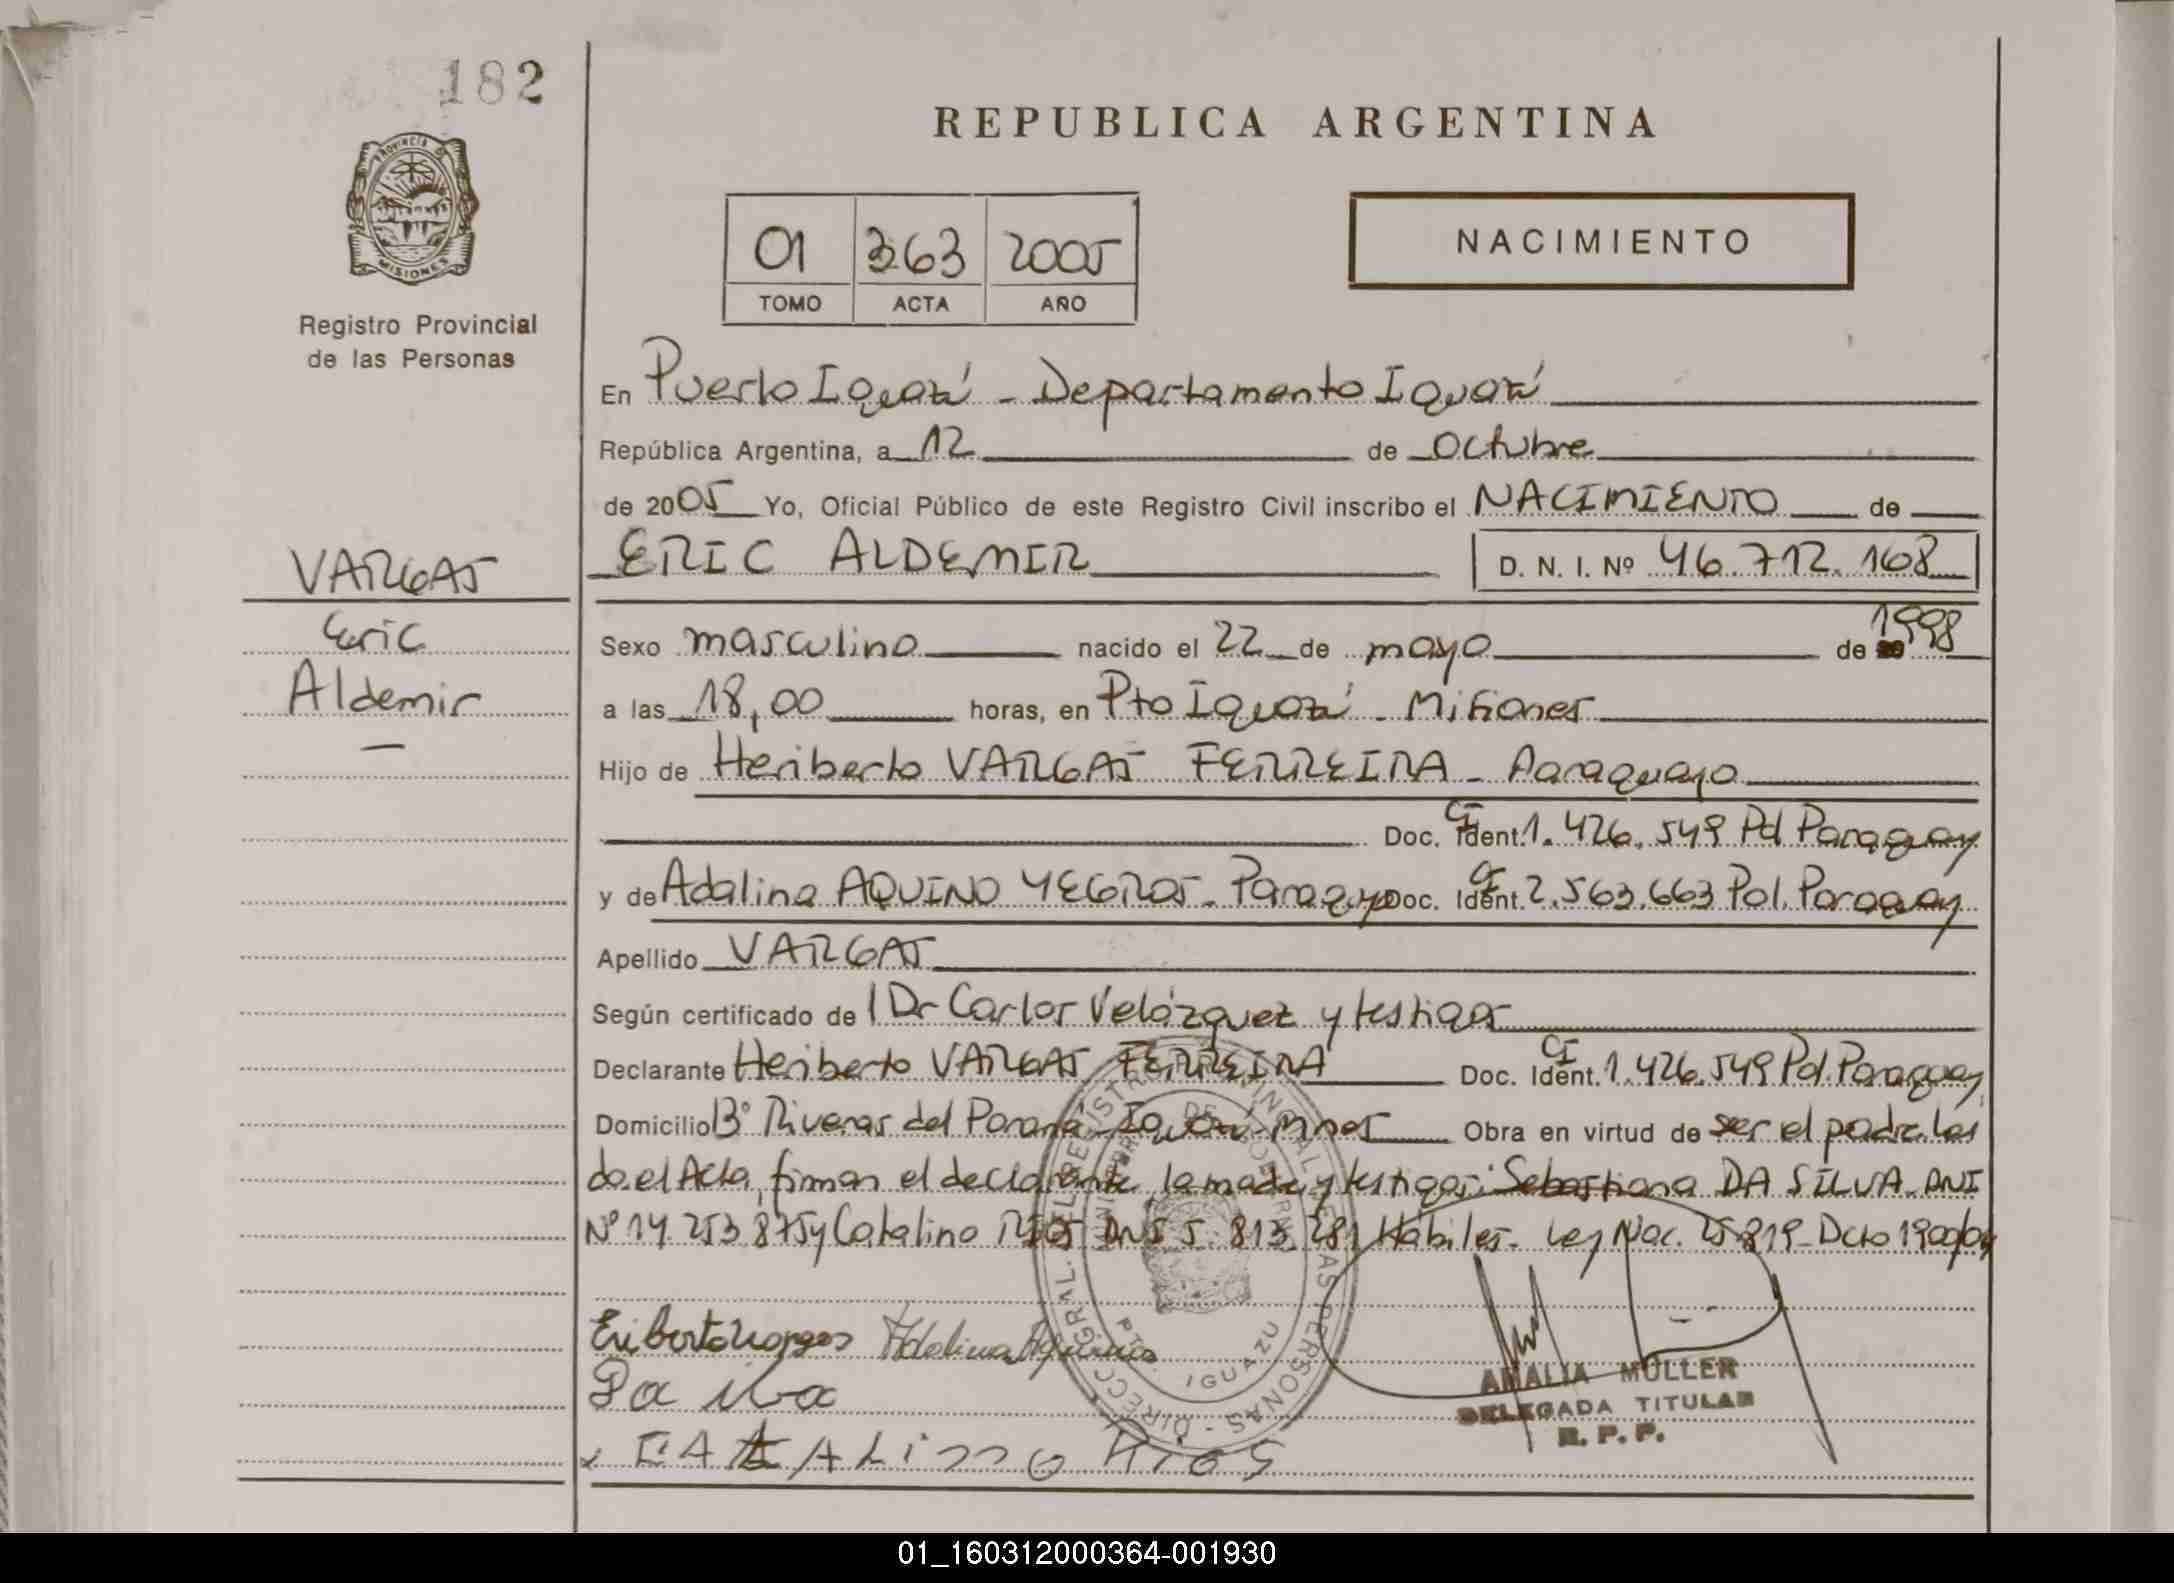 182
REPUBLICA ARGENTINA
PROVINCIA DE
MISIONES
Registro Provincial
de las Personas
01 363 2005
TOMO ACTA AÑO
NACIMIENTO
En Puerto Iguazú - Departamento Iguazú
República Argentina, a 12 de Octubre
de 2005 Yo, Oficial Público de este Registro Civil inscribo el NACIMIENTO de
VARGAS
ERIC ALDEMIR D. N. I. Nº 46.712.168
Eric
Sexo masculino nacido el 22 de mayo de 1998
Aldemir
a las 18,00 horas, en Pto Iguazú - Misiones
Hijo de Heriberto VARGAS FERREIRA - Paraguayo
Doc. Ident. CI 1.426.549 Pol Paraguay
y de Adalina AQUINO YEGROS - Paragya Doc. Ident. CI 2.563.663 Pol. Paraguay
Apellido VARGAS
Según certificado de l Dr Carlos Velázquez y testigos
Declarante Heriberto VARGAS FERREIRA Doc. Ident. CI 1.426.549 Pol. Paraguay
Domicilio Bº Riveras del Paraná - Iguazú - Mnes Obra en virtud de ser el padre. Leí
da el Acta, firman el declarante, la madre y testigos: Sebastiana DA SILVA - DNI
Nº 14.253.875 y Catalino RIOS DNI 5.813.281 Hábiles - Ley Nac. 25.819 - Dcto 1900/04
Eriberto Vargas Adelina Aquino
CATALino Rios
DIRECC. GRAL. DEL REGISTRO PROVINCIAL DE LAS PERSONAS
PTO. IGUAZU
AMALIA MULLER
DELEGADA TITULAR
R. P. P.
01_160312000364-001930